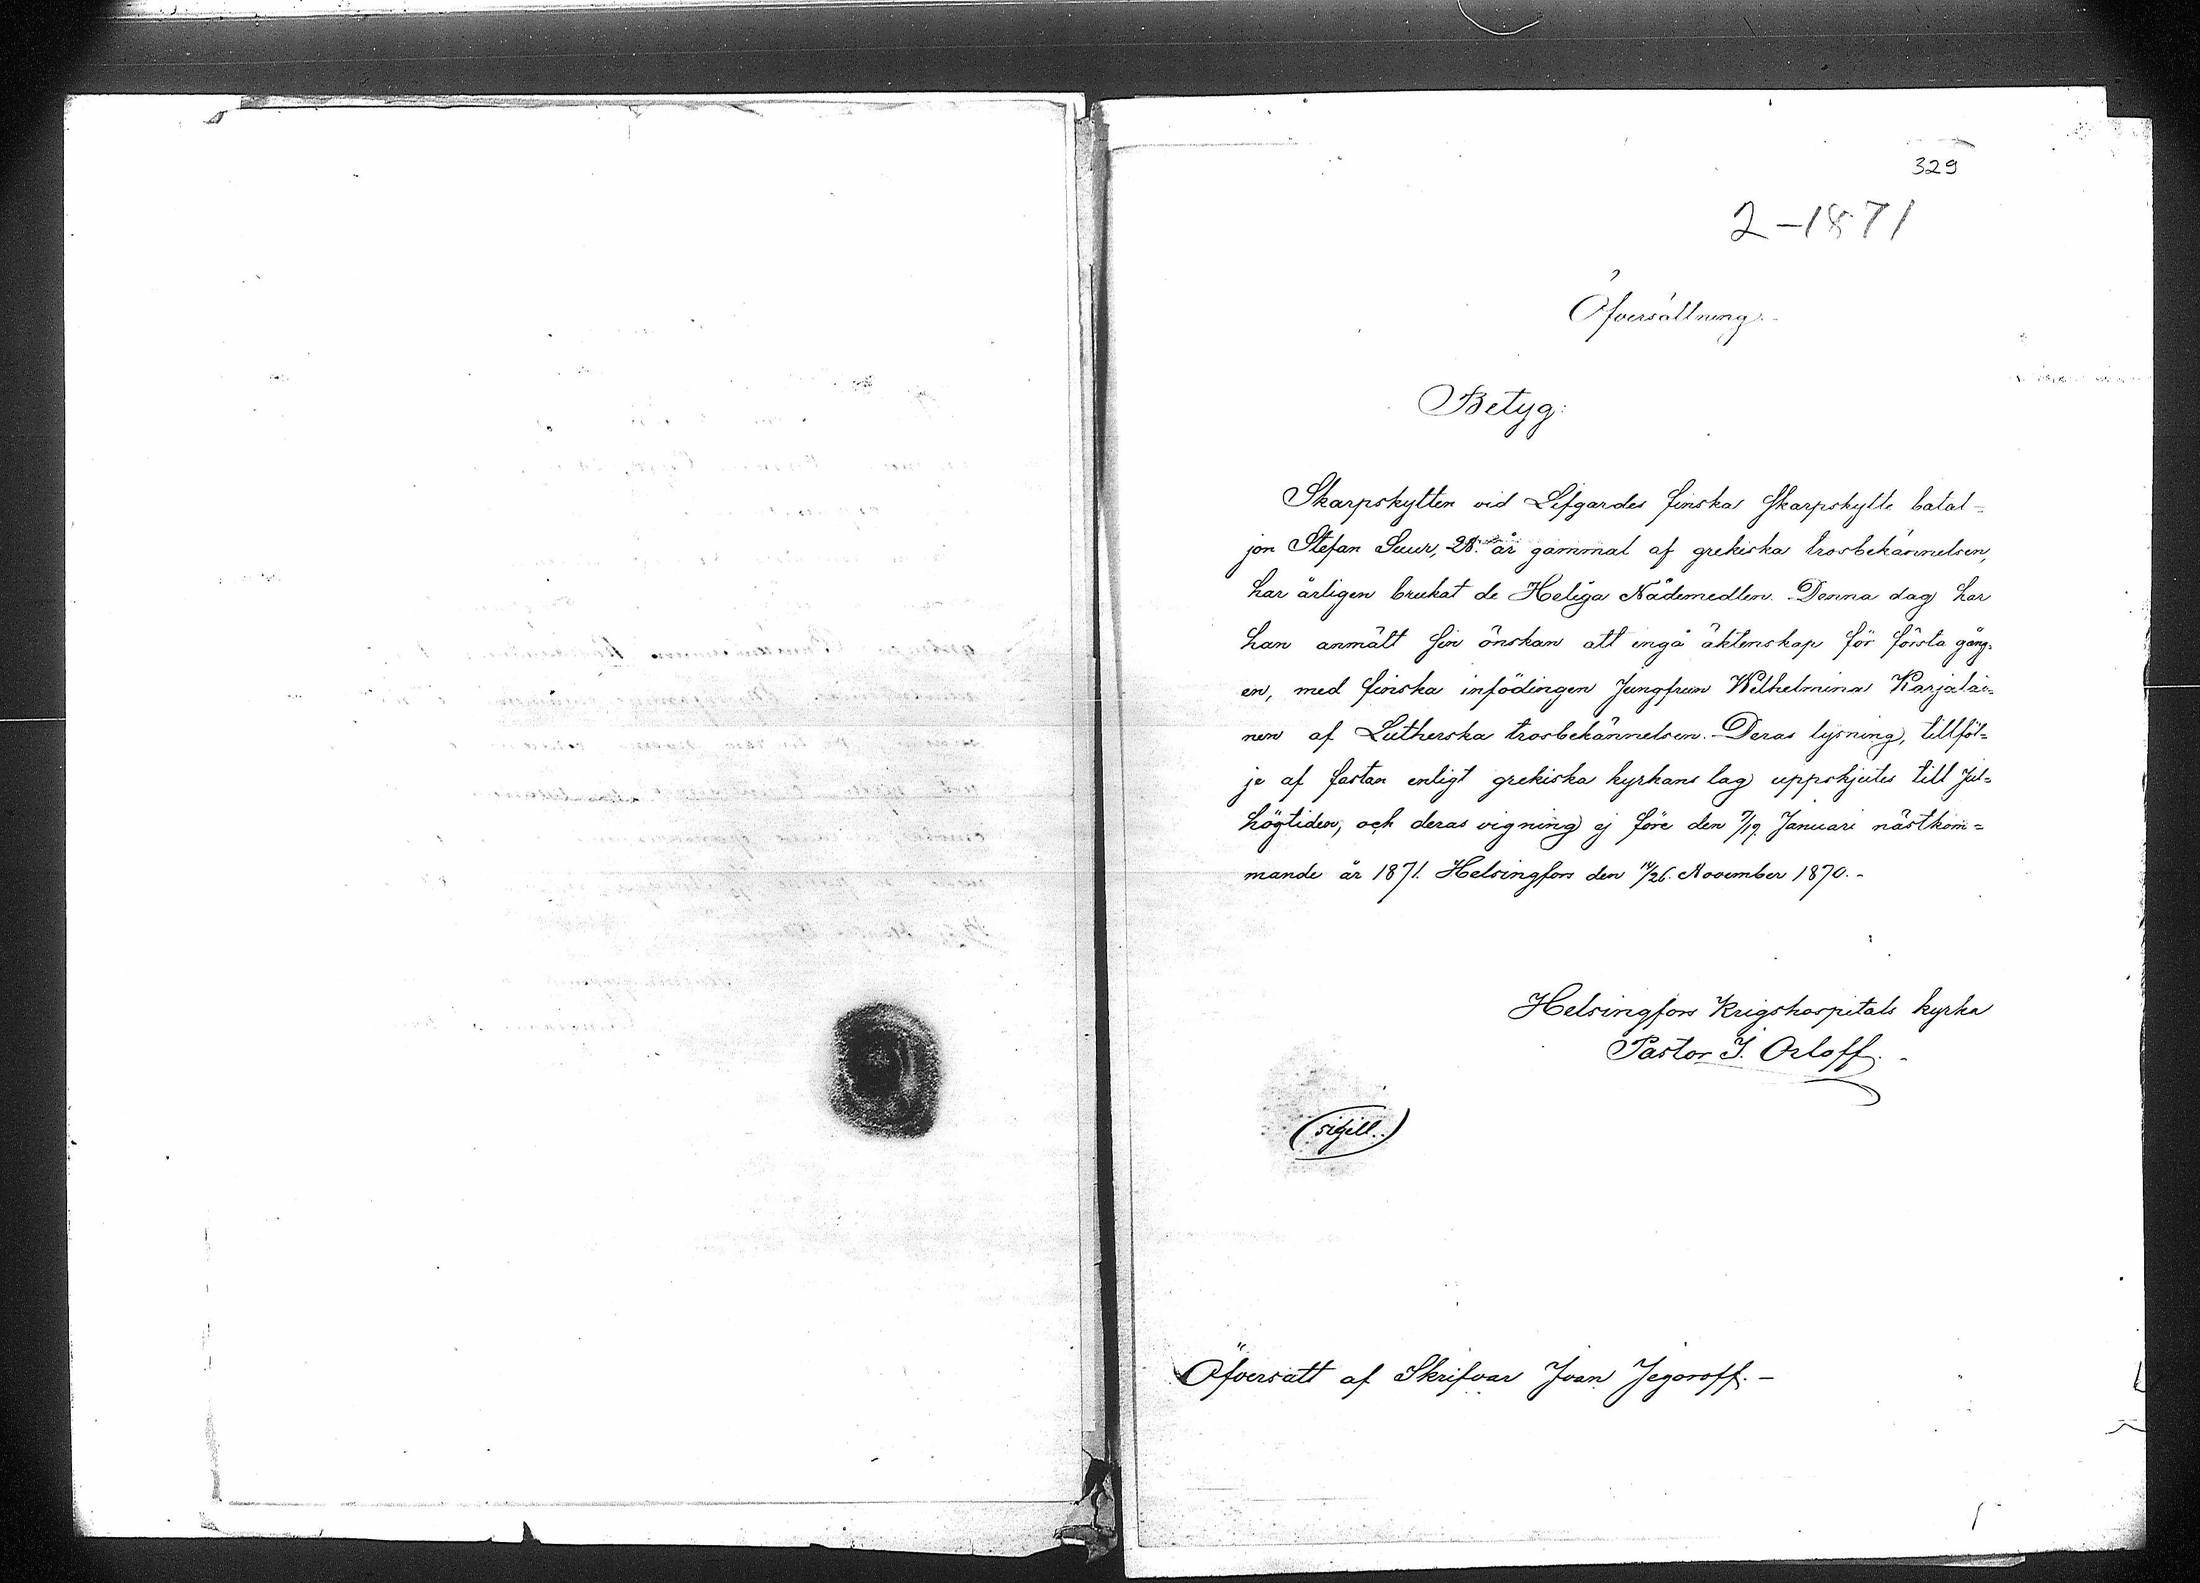 329
2-1871
Öfversättning.
Betyg:
Skarpskytten vid Lifgardes finska skarpskytte batal=
jon Stefan Suur, 28. år gammal af grekiska trosbekännelsen,
har årligen brukat de Heliga Nådemedlen. Denna dag har
han anmält sin önskan att ingå äktenskap för första gång=
en, med finska infödingen Jungfrun Wilhelmina Karjalai=
nen af Lutherska trosbekännelsen. Deras lysning, tillföl=
je af fastan enligt grekiska kyrkans lag uppskjutes till Jul=
högtiden, och deras vigning ej före den 7/19. Januari nästkom=
mande år 1871. Helsingfors den 14/26. November 1870.-
Helsingfors Krigshospitals kyrka
Pastor J. Orloff.-
(sigill.)
Öfversatt af Skrifvar Ivan Jegoroff.-